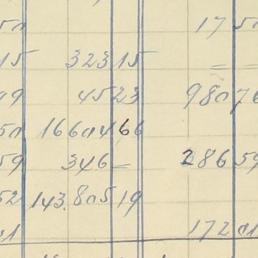 50 17 50
15 323 15 = =
99 45 23 980 76
50 16604 66
59 346 — 286 59
52 143.805 19
01 172 01